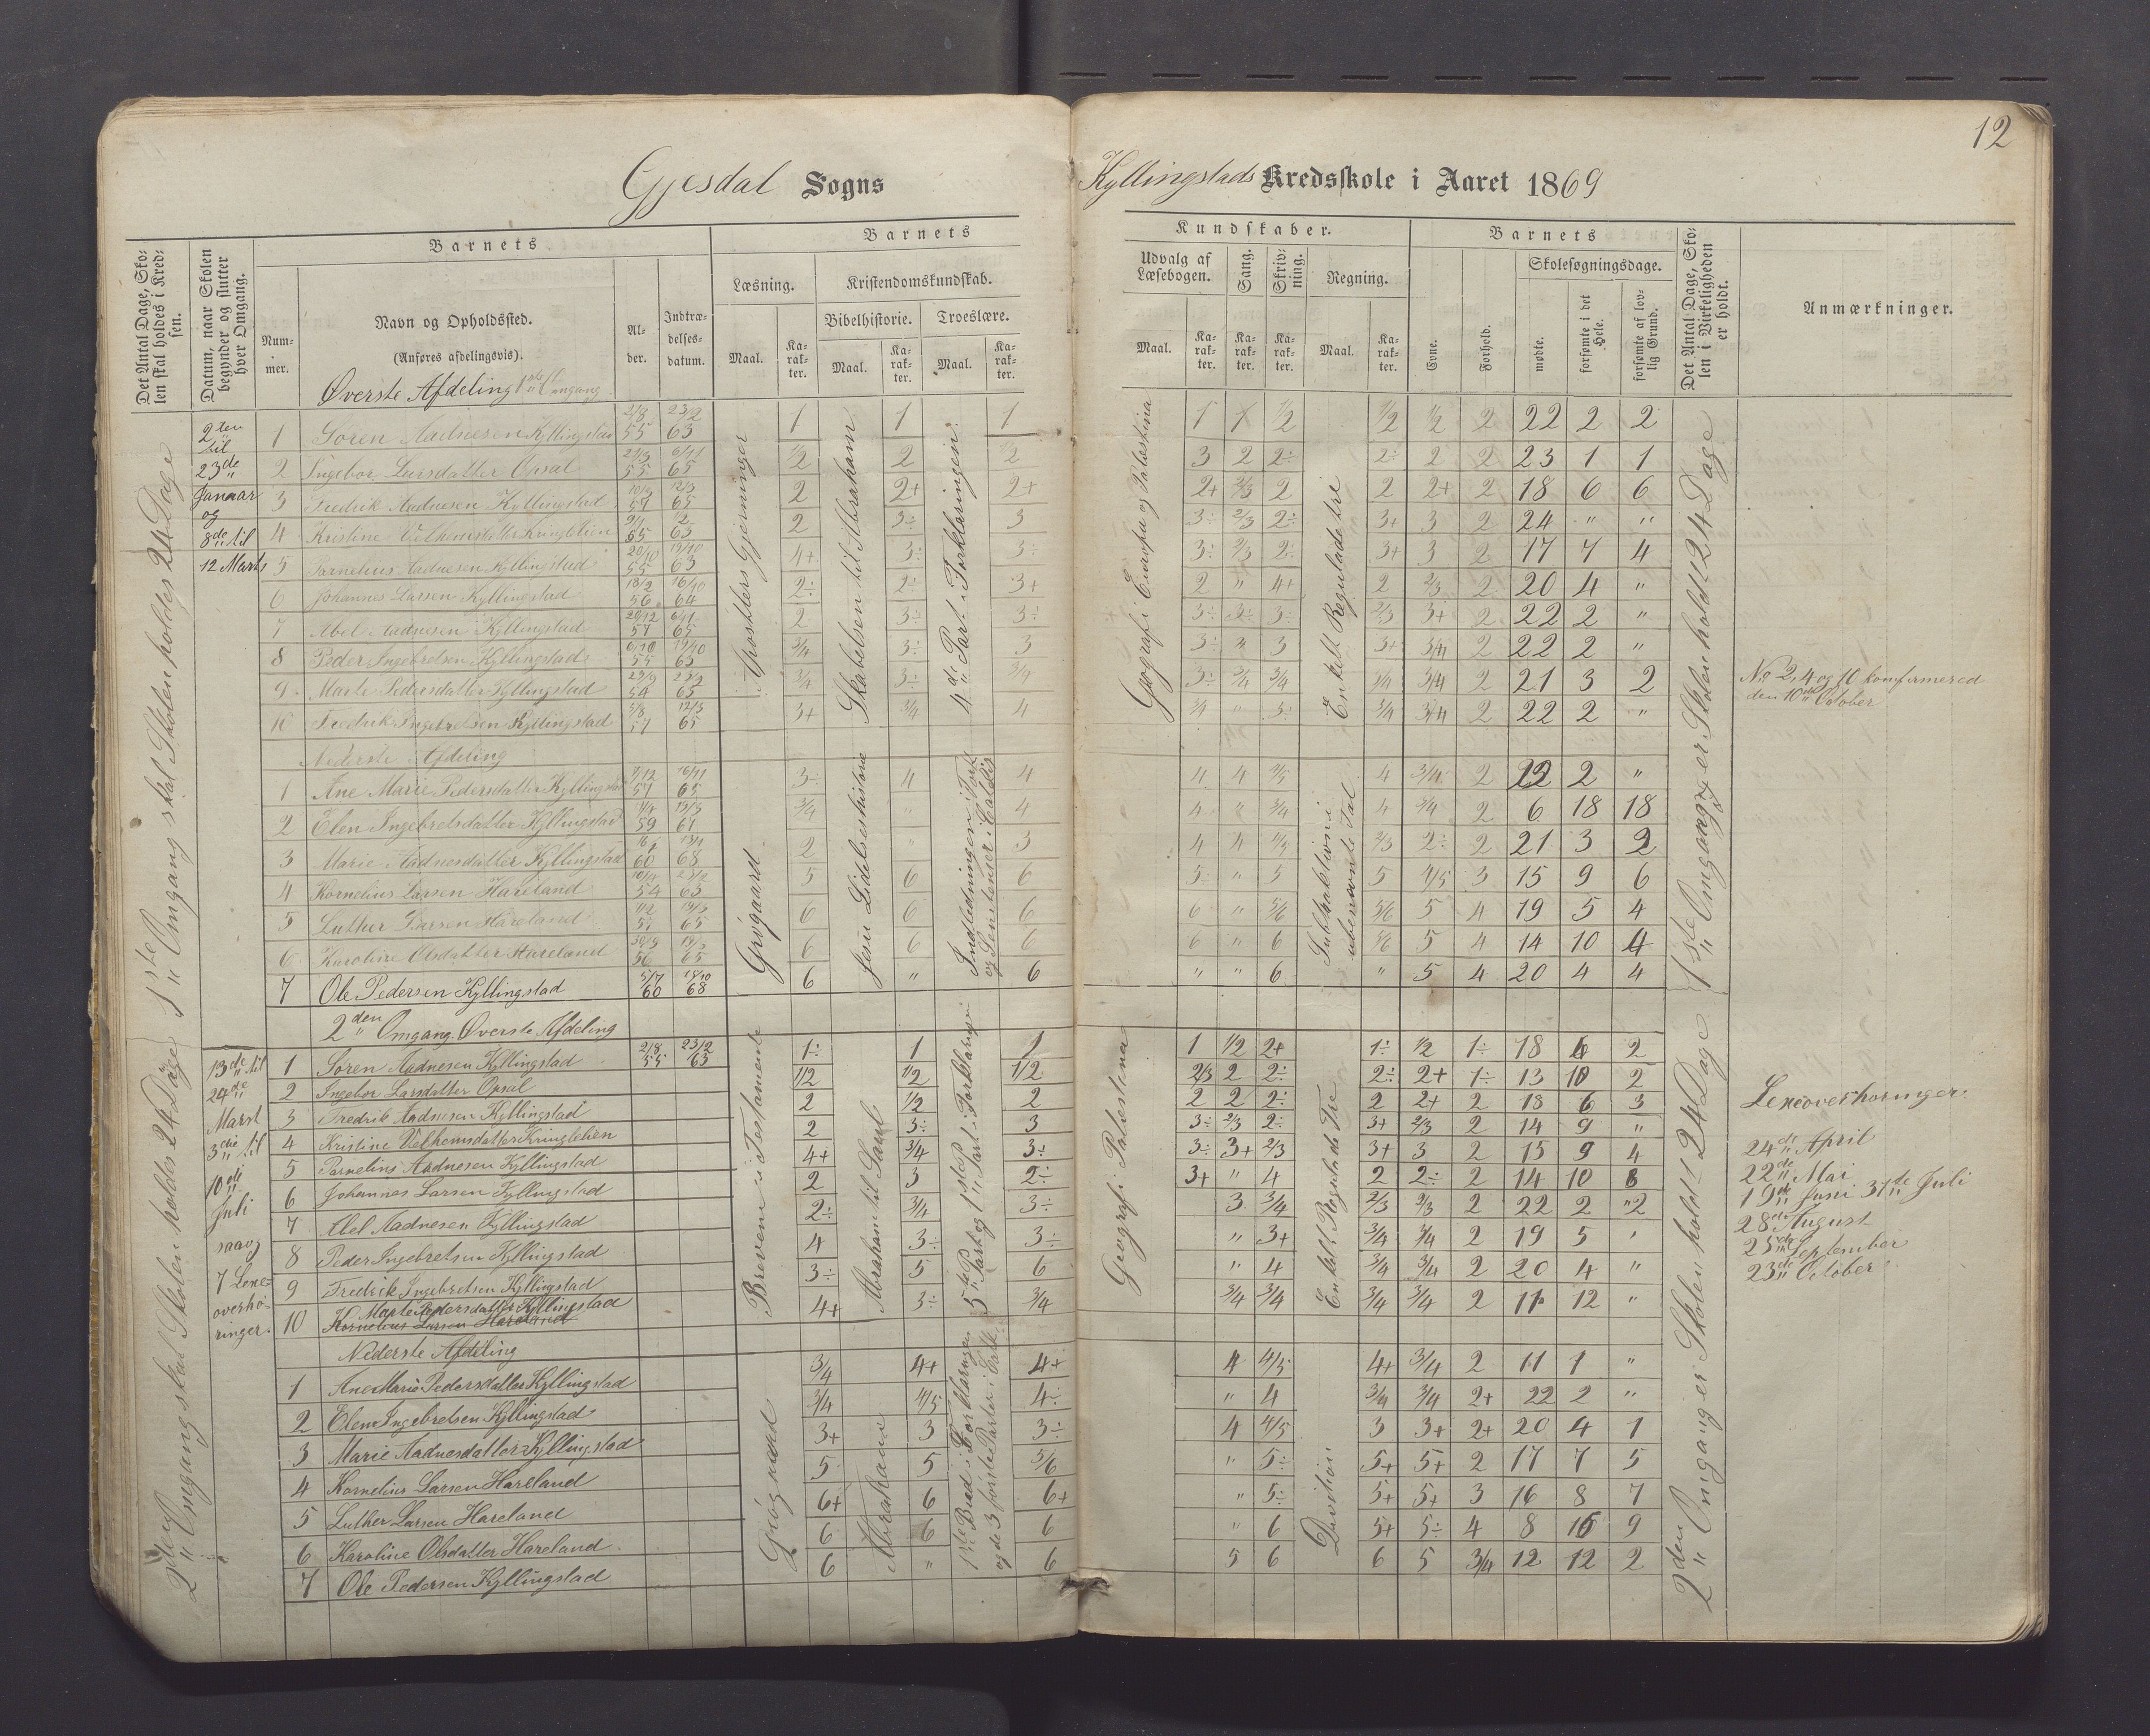 12
Gjesdal Sogns Kyllingstads Kredsskole i Aaret 1869
Det Antal Dage, Skolen skal holdes i Kredsen.
Datum, naar Skolen begynder og slutter hver Omgang.
Barnets
Nummer.
Navn og Opholdssted.
(Anføres afdelingsvis).
Alder.
Indtrædelsesdatum.
Barnets Kundskaber.
Læsning.
Maal.
Karakter.
Kristendomskundskab.
Bibelhistorie.
Maal.
Karakter.
Troeslære.
Maal.
Karakter.
Udvalg af Læsebogen.
Maal.
Karakter.
Sang.
Karakter.
Skrivning.
Karakter.
Regning.
Maal.
Karakter.
Barnets
Evne.
Forhold.
Skolesøgningsdage.
mødte.
forsømte i det Hele.
forsømte af lovlig Grund.
Det Antal Dage, Skolen i Virkeligheden er holdt.
Anmærkninger.
Øverste Afdeling 1ste Omgang
1ste Omgang skal Skolen holdes 24 Dage
2den til 23de Januar og 8de til 12 Marts
Apostlers Gjerninger
Skabelsen til Abraham
4de Part i Forklaringen
Geografi i Europa og Palæstina
Enkelt Regulade tri
1ste Omgang er Skolen holdt 24 Dage
1 Søren Aadnesen Kyllingstad 2/8 55 23/2 63 1 1 1 1 1 1/2 1/2 1/2 2 22 2 2
2 Ingebor Larsdatter Opsal 55 65 1/2 2 1/2 3 2 2÷ 2÷ 2 2 23 1 1
3 Fredrik Aadnesen Kyllingstad 57 12/3 65 2 2+ 2+ 2+ 2/3 2 2 2+ 2 18 6 6
4 Kristine Velhemsdatter Kringlelien 55 63 2 3÷ 3 3÷ 2/3 2÷ 3+ 3 2 24 " "
5 Parnelius Aadnesen Kyllingstad 20/10 55 19/10 63 4+ 3÷ 3÷ 3÷ 2/3 2÷ 3+ 3 2 17 7 4
6 Johannes Larsen Kyllingstad 18/2 56 16/10 64 2÷ 2÷ 3+ 2 " 4+ 2 2/3 2 20 4 "
7 Abel Aadnesen Kyllingstad 20/12 57 6/11 65 2 3÷ 3÷ 3÷ 3÷ 3÷ 2/3 3+ 2 22 2 "
8 Peder Ingebretsen Kyllingstad 6/10 55 19/10 63 3/4 3÷ 3 3÷ " 3 3+ 3/4 2 22 2 "
9 Marte Pedersdatter Kyllingstad 54 65 3/4 3÷ 3/4 3÷ 3/4 3/4 3/4 3/4 2 21 3 2
10 Fredrik Ingebretsen Kyllingstad 57 12/3 65 3+ 3/4 4 3/4 " 3÷ 3/4 3/4 2 22 2 "
No 2, 4 og 10 konfirmered
den 10de October
Nederste Afdeling
Grøgaard.
Jesu Lidelseshistorie
Indledningen i Fork. og Sentenser i Balslev
Subtraktion i ubenævnte Tal
1 Ane Marie Pedersdatter Kyllingstad 57 16/11 65 3÷ 4 4 4 4 3/5 4 3/4 2 22 2 "
2 Elen Ingebretsdatter Kyllingstad 59 67 3/4 " 4 4 " 3/4 4 3/4 2 6 18 18
3 Marie Aadnesdatter Kyllingstad 60 68 2 " 3 4 4 4/5 2/3 2÷ 2 21 3 2
4 Kornelius Larsen Hareland 54 63 5 6 6 5÷ " 5 5 4/5 3 15 9 6
5 Luther Larsen Hareland 57 65 6 6 6 6 " 5/6 5/6 5 4 19 5 4
6 Karoline Olsdatter Hareland 56 65 6 6 6 6 " 6 5/6 5 4 14 10 4
7 Ole Pedersen Kyllingstad 5/17 60 18/10 68 6 " 6 " " 6 " 5 4 20 4 4
2den Omgang. Øverste Afdeling
2den Omgang skal Skolen holdes 24 Dage
13de til 24de Marst 3die til 10de Juli saavog 7 Lexeoverhøringer.
Brevene i Testamente
Abraham til Saul
5te Part og 1ste Part i Forklaring
Geografi Palestina
Enkelt Regulade Tre
2den Omgang er Skolen holdt 24 Dage
1 Søren Aadnesen Kyllingstad 2/8 55 23/2 63 1÷ 1 1 1 1/2 2+ 1÷ 1/2 1÷ 18 6 2
2 Ingebor Larsdatter Opsal 1/2 1/2 1/2 2/3 2 2÷ 2÷ 2+ 1÷ 13 10 2
3 Fredrik Aadnesen Kyllingstad 2 1/2 2 2 2 2÷ 2 2+ 2 18 6 3
4 Kristine Velhemsdatter Kringlelien 2 3÷ 3 3÷ 2/3 2÷ 3+ 2/3 2 14 9 "
5 Parnelius Aadnesen Kyllingstad 4+ 3/4 3÷ 3÷ 3+ 2/3 3+ 3 2 15 9 4
6 Johannes Larsen Kyllingstad 2 3 2÷ 3+ " 4 2 2÷ 2 14 10 8
7 Abel Aadnesen Kyllingstad 2÷ 3/4 3÷ 3 3/4 2/3 2/3 2 22 2 "2
8 Peder Ingebretsen Kyllingstad 4 3÷ 3÷ " 3+ 3/4 3/4 2 19 5 "
9 Fredrik Ingebretsen Kyllingstad 3÷ 5 6 " 4 3/4 3/4 2 20 4 "
10 Marte Pedersdatter Kyllingstad 4+ 3÷ 3/4 3/4 3/4 3/4 3/4 2 11 12 "
Kornelius Larsen Hareland
Lexeoverhøringer.
24de April
22de Mai
19de Juni 31te Juli
28de August
25de September
23de October
Nederste Afdeling
Grøgaard
Abraham
1ste Bud i Forklaringen og de 3 første Parter i
Division
1 Ane Marie Pedersdatter Kyllingstad 3/4 4+ 4+ 4 4/5 4+ 3/4 2 11 1 "
2 Elen Ingebretsen Kyllingstad 3/4 4/5 4÷ " 4 3/4 3/4 2+ 22 2 "
3 Marie Aadnesdatter Kyllingstad 3+ 3 3÷ 4 4/5 3 3+ 2+ 20 4 1
4 Kornelius Larsen Hareland 5 5 5/6 " 5÷ 5+ 5+ 2 17 7 5
5 Luther Larsen Hareland 6+ 6 6+ " 5÷ 5+ 5+ 3 16 8 7
6 Karoline Olsdatter Hareland 6 6 6 " 6 5+ 5÷ 4 8 16 9
7 Ole Pedersen Kyllingstad 6 " 6 5 6 6 5 3/4 12 12 2